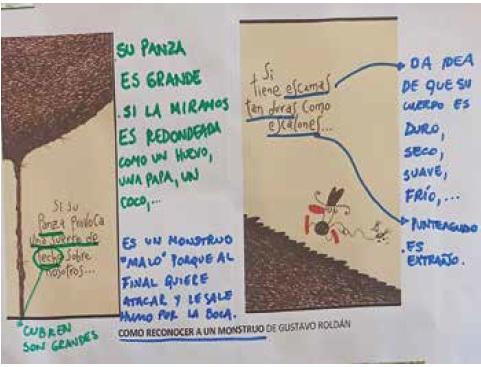 SU PANZA
ES GRANDE
. SI LA MIRAMOS
ES REDONDEADA
COMO UN HUEVO,
UNA PAPA, UN
COCO,...
Si su
Panza Provoca
una suerte de
techo sobre
nosotros...
*CUBREN
SON GRANDES
ES UN MONSTRUO
"MALO" PORQUE AL
FINAL QUIERE
ATACAR Y LE SALE
HUMO POR LA BOCA.
Si
tiene escamas
tan duras como
escalones...
DA IDEA
DE QUE SU
CUERPO ES
DURO,
SECO,
SUAVE,
FRÍO,...
PUNTEAGUDO
. ES
EXTRAÑO.
COMO RECONOCER A UN MONSTRUO DE GUSTAVO ROLDÁN